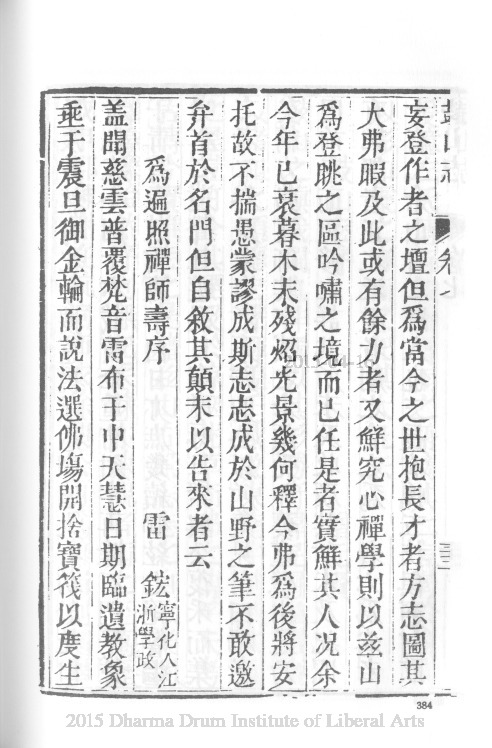 山志 卷七
妄登作者之壇但爲當今之世抱長才者方志圖其
大弗暇及此或有餘力者又鮮究心禪學則以茲山
爲登眺之區吟嘯之境而已任是者實鮮其人况余
今年已衰暮木末殘炤光景幾何釋今弗爲後將安
托故不揣愚蒙謬成斯志志成於山野之筆不敢邀
弁首於名門但自敘其顛末以告來者云
爲遍照禪師壽序
雷鋐 寧化人江
浙學政
盖聞慈雲普覆梵音雷布于中天慧日期臨遺教象
垂于震旦御金輪而說法選佛場開捨寶筏以度生
384
2015 Dharma Drum Institute of Liberal Arts